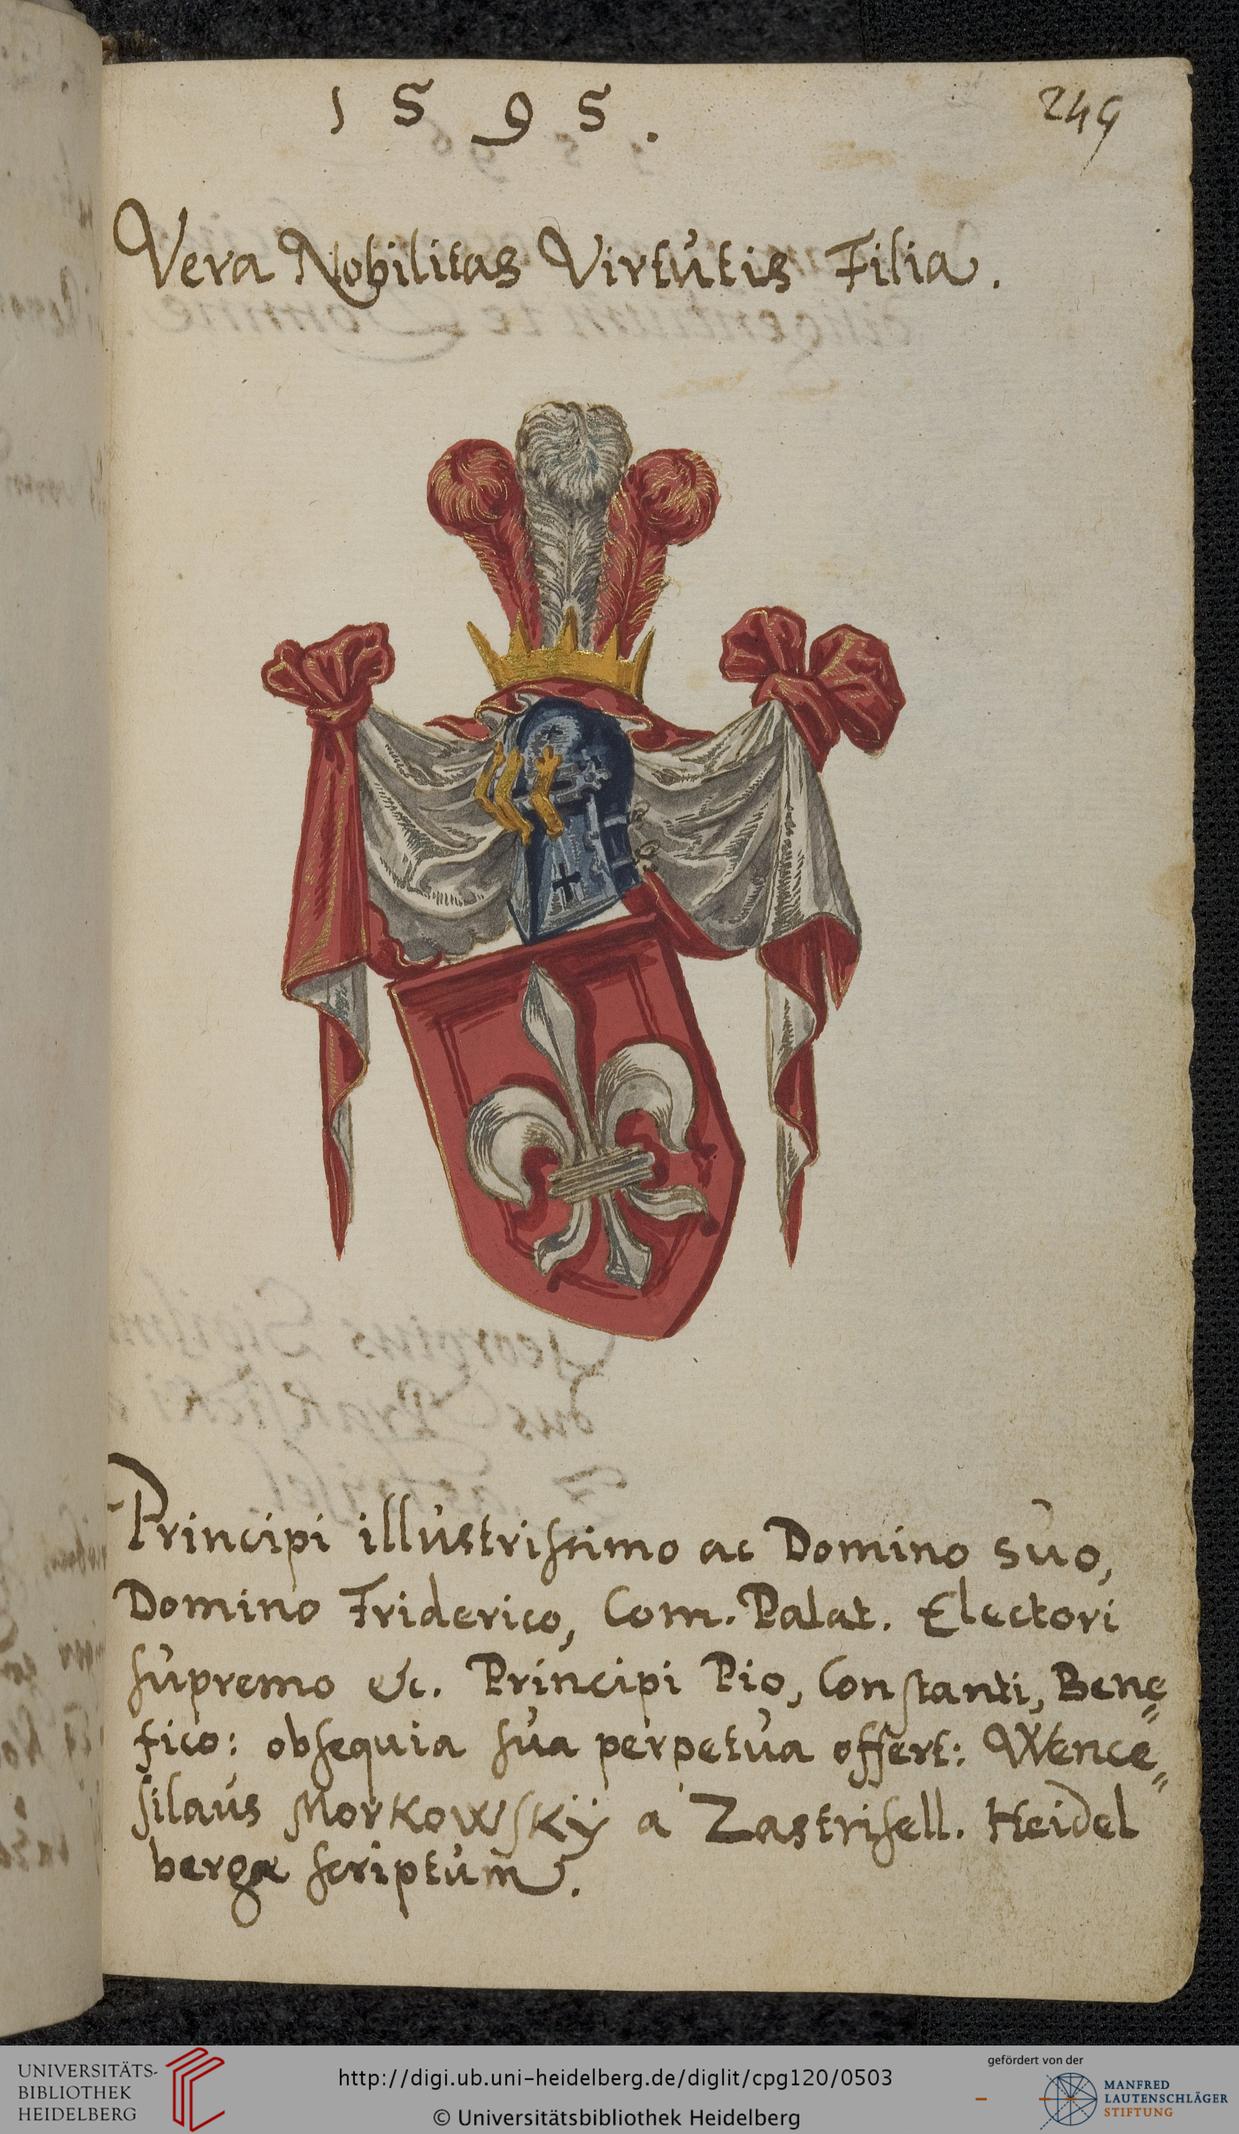 1595.
249
Vera Nobilitas Virtutis Filia.
Principi illustrissimo ac Domino suo,
Domino Friderico, Com. Palat. Electori
supremo &c. Principi Pio, Constanti, Bene„
fico: obsequia sua perpetua offert: Wence„
silaus Morkowskÿ a Zastrisell. Heidel
bergæ scriptum.
UNIVERSITÄTS-
BIBLIOTHEK
HEIDELBERG
http://digi.ub.uni-heidelberg.de/diglit/cpg120/0503
© Universitätsbibliothek Heidelberg
gefördert von der
MANFRED
LAUTENSCHLÄGER
STIFTUNG